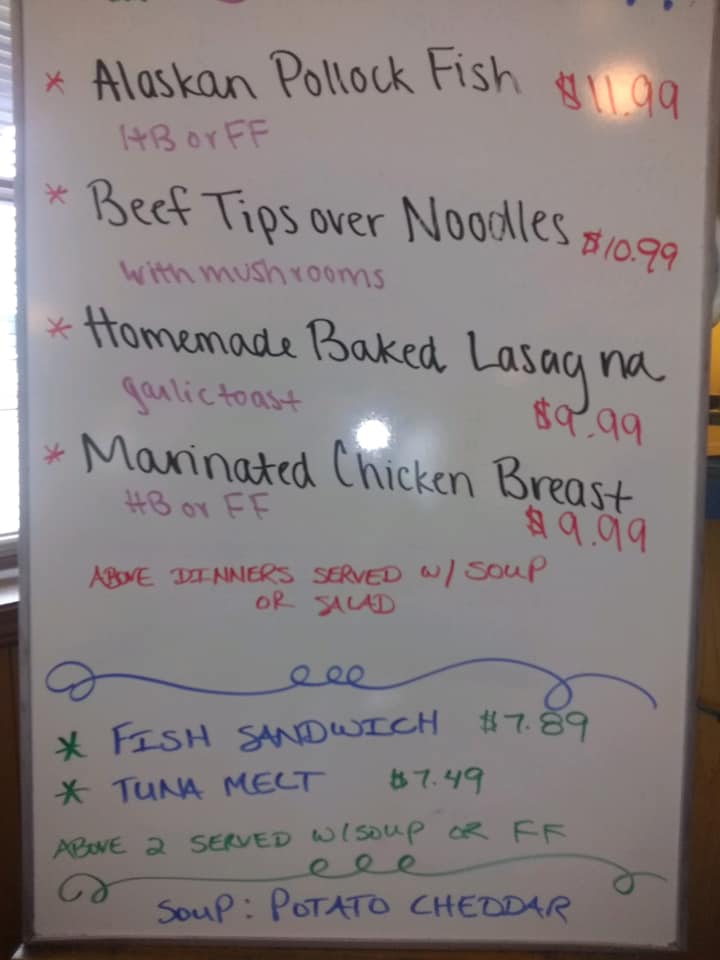 * Alaskan Pollock Fish $11.99
HB or FF
* Beef Tips over Noodles $10.99
with mushrooms
* Homemade Baked Lasagna
garlic toast $9.99
* Marinated Chicken Breast
HB or FF $9.99
ABOVE DINNERS SERVED W/ SOUP
OR SALAD
* FISH SANDWICH $7.89
* TUNA MELT $7.49
ABOVE 2 SERVED W/SOUP OR FF
SOUP: POTATO CHEDDAR